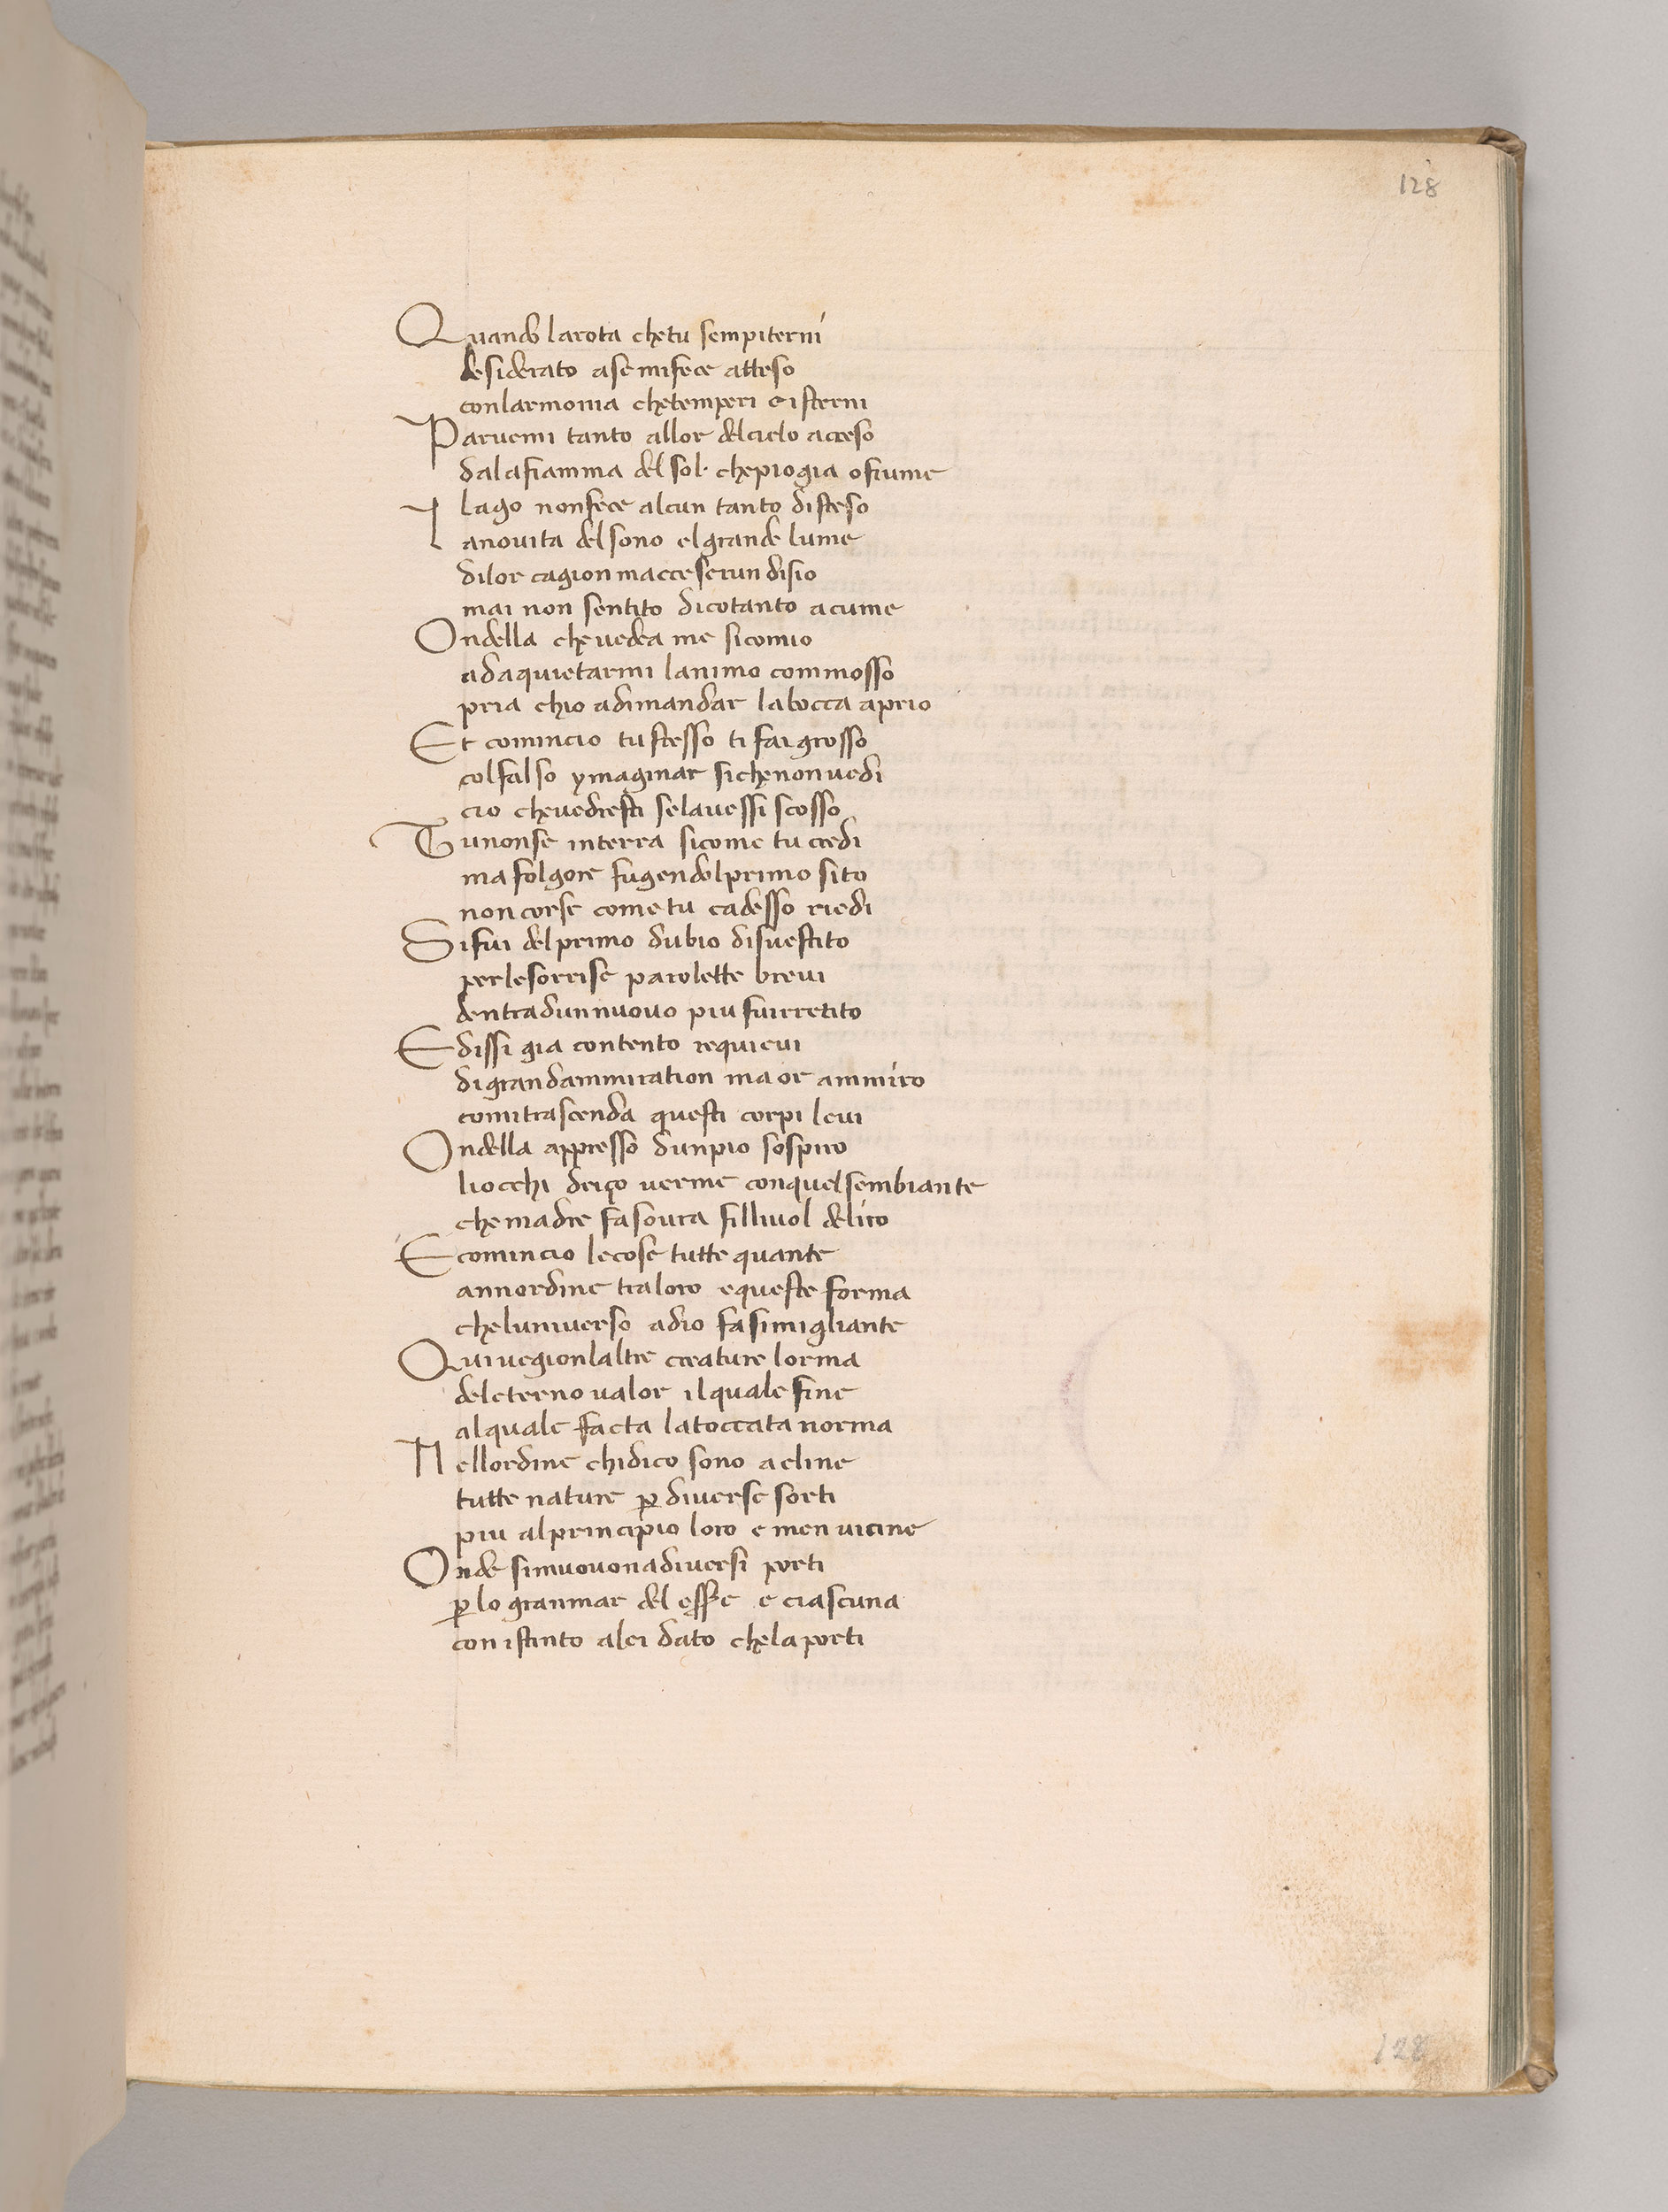 128
Quando larota chetu sempiterni
desiderato asemifece atteso
conlarmonia chetemperi eisterni
Paruemi tanto allor delcielo acceso
dalafiamma del sol. chepiogia ofiume
lago nonfece alcun tanto disteso
L anouita delsono elgrande lume
dilor cagion macceserun disio
mai non sentito dicotanto acume
Ondella cheuedea me sicomio
adaquietarmi lanimo commosso
pria chio adimandar labocca aprio
Et comincio tu stesso ti fai grosso
colfalso ymaginar sichenonuedi
cio cheuedresti selauessi scosso
Tunonse interra sicome tu credi
ma folgore fugendolprimo sito
non corse come tu cadesso riedi
Sifui delprimo dubio disuestito
perlesorrise parolette breui
dentradunnuouo piu fuirretito
Edissi gia contento requieui
digrandammiration ma or ammiro
comitrascenda questi corpi leui
Ondella appresso dunpio sospiro
liocchi driço uerme conquelsembiante
chemadre fasoura filliuol deliro
Ecomincio lecose tutte quante
annordine traloro equeste forma
cheluniuerso adio fasimigliante
Quiuegionlaltre creature lorma
deleterno ualor ilquale fine
alquale facta latoccata norma
Nellordine chidico sono acline
tutte nature ꝑ diuerse sorti
piu alprincipio loro e men uicine
Onde simuouonadiuersi porti
ꝑ lo granmar del essere e ciascuna
con istinto alei dato chelaporti
128